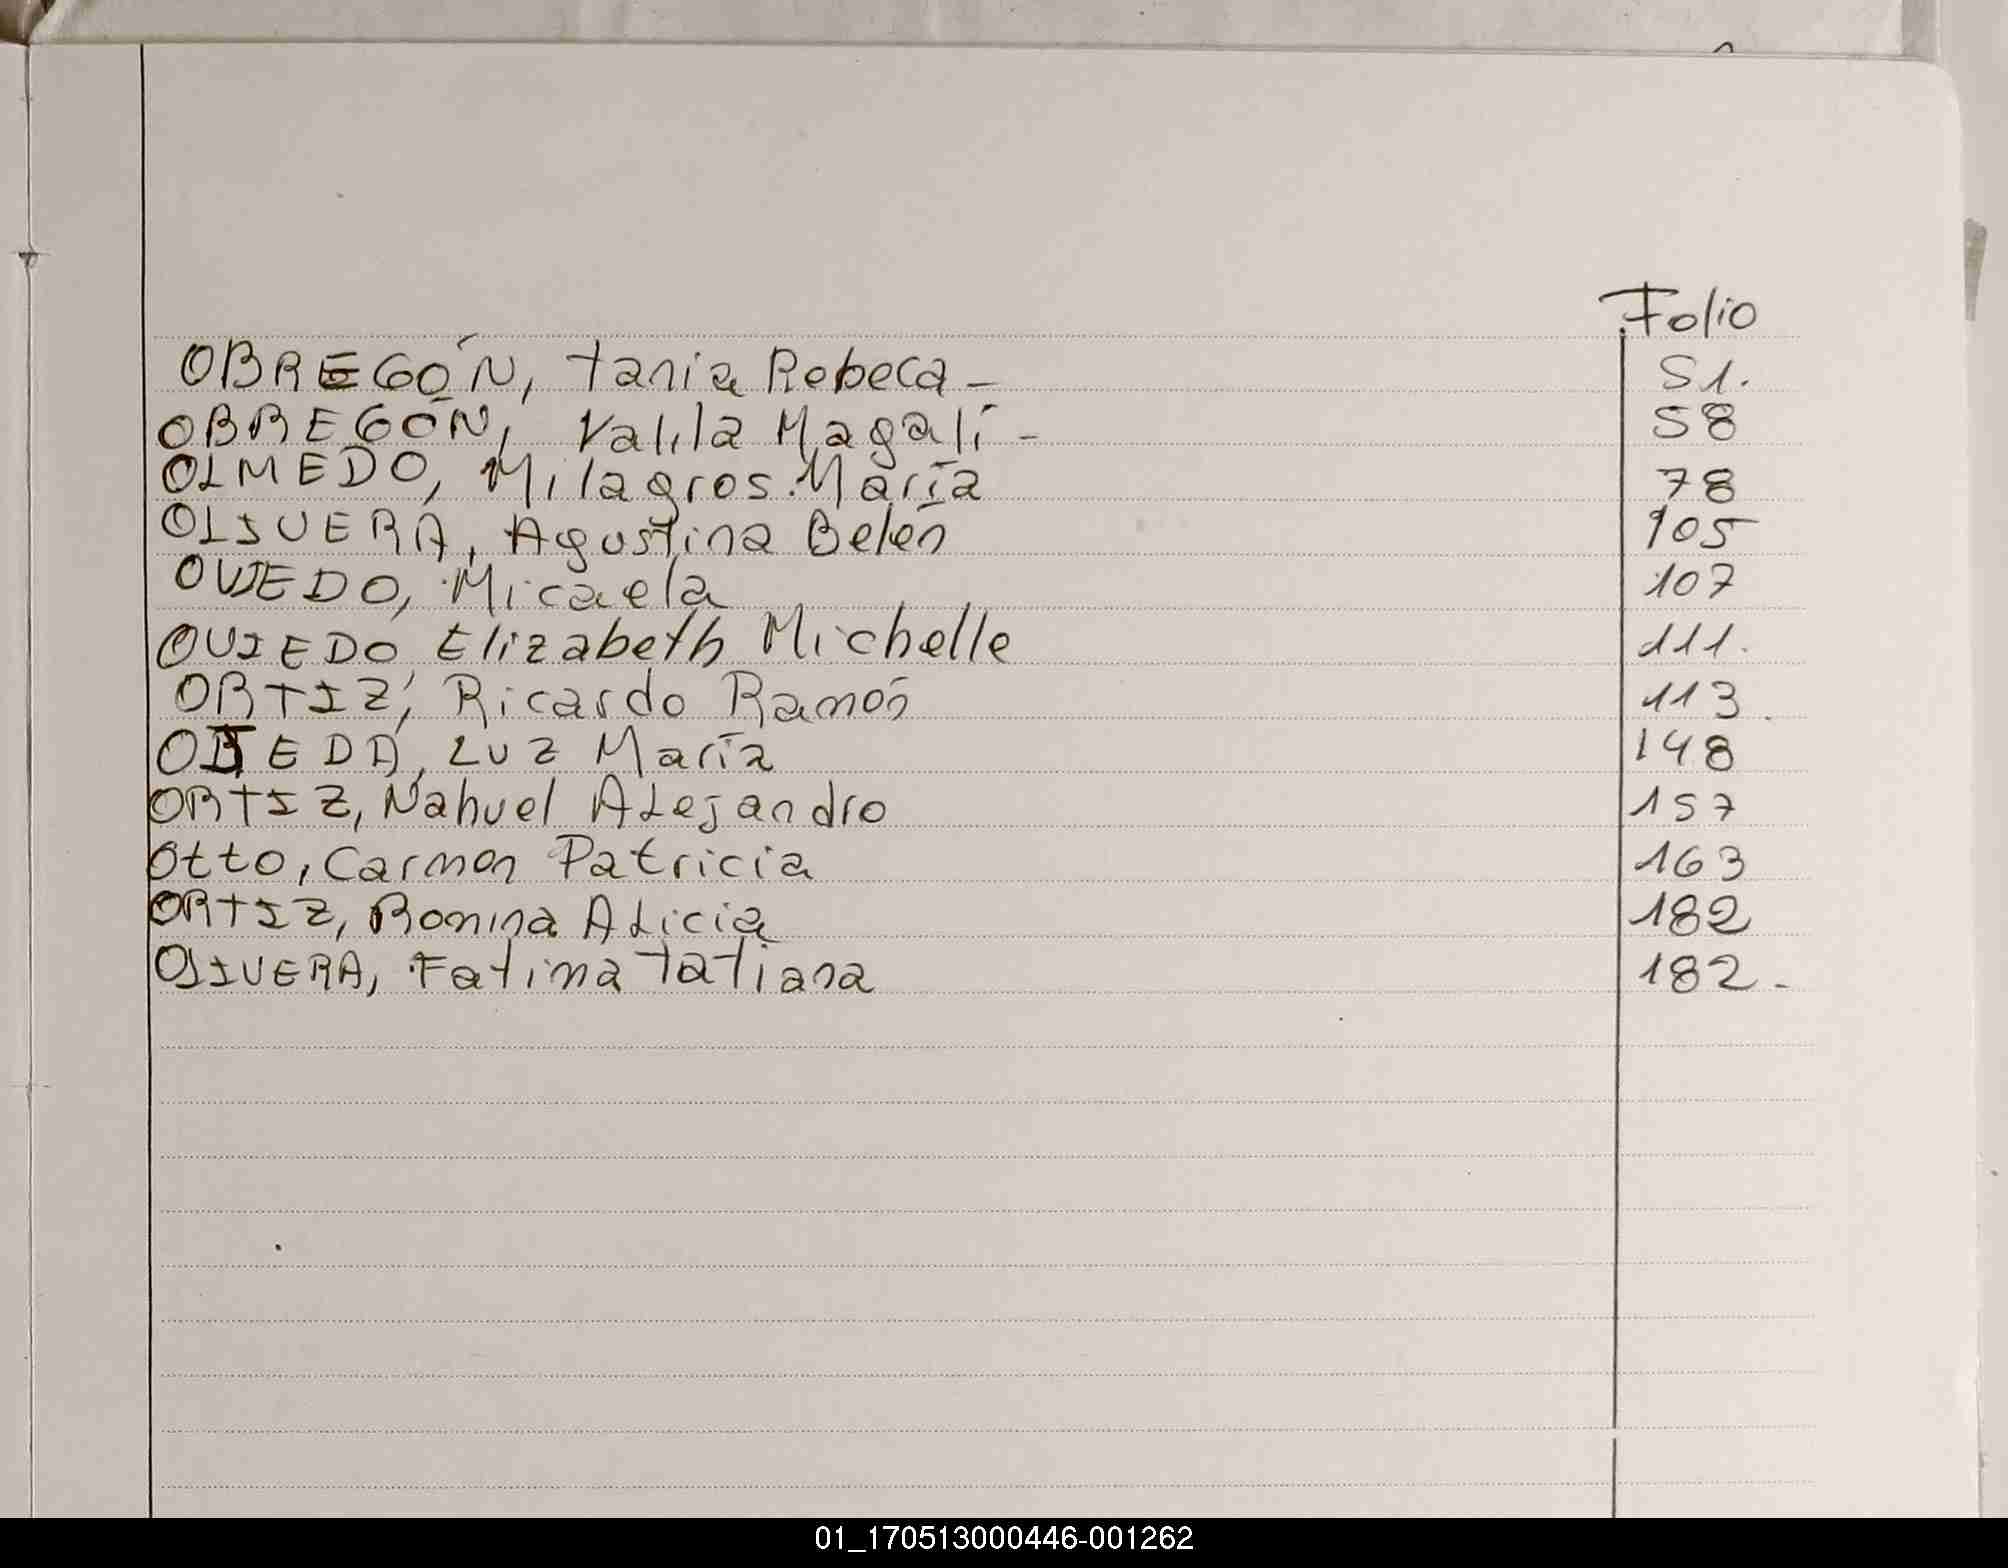 Folio
OBREGÓN, Tania Rebeca - 51.
OBREGÓN, Magalí - 58
OLMEDO, Milagros María 78
OLIVERA, Agustina Belén 105
OVIEDO, Micaela 107
OVIEDO Elizabeth Michelle 111.
ORTIZ, Ricardo Ramón 113.
OJEDA, Luz María 148
ORTIZ, Nahuel Alejandro 157
Otto, Carmen Patricia 163
ORTIZ, Romina Alicia 182
OLIVERA, Fatima Tatiana 182.-
01_170513000446-001262